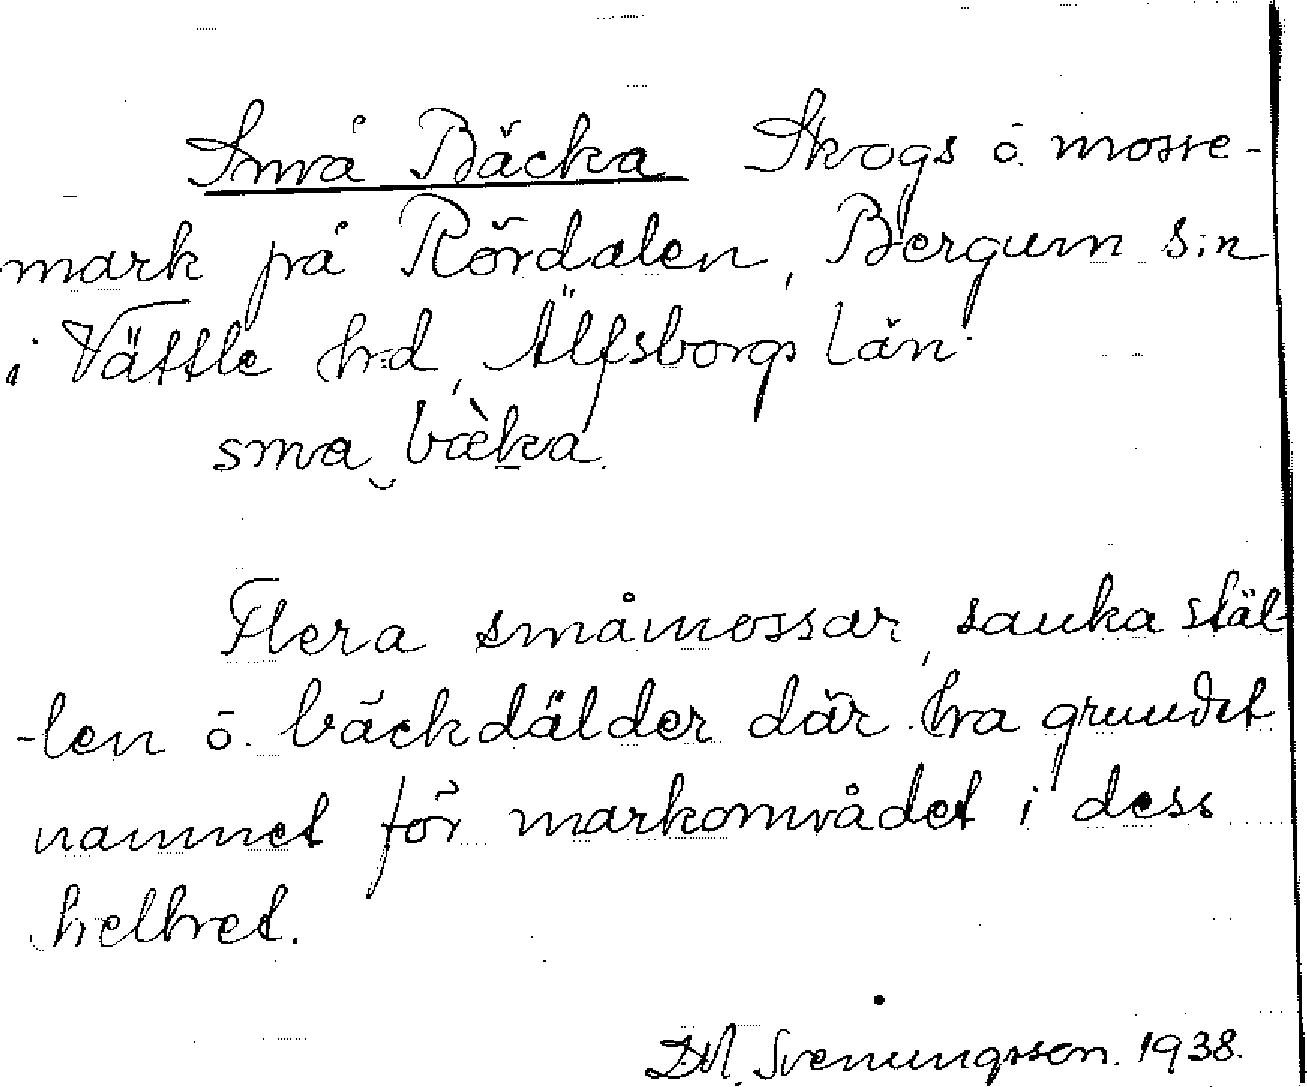 Små Bäcka Skogs ō mosse-
mark på Rördalen, Bergum s:n
i Vättle h:d, Älfsborgs län.
sma‿bæ̀ka.
Flera småmossar, sanka stäl-
-len ō. bäckdälder där ha grundet
namnet för markområdet i dess
helhet.
D.M. Svenungsson. 1938.